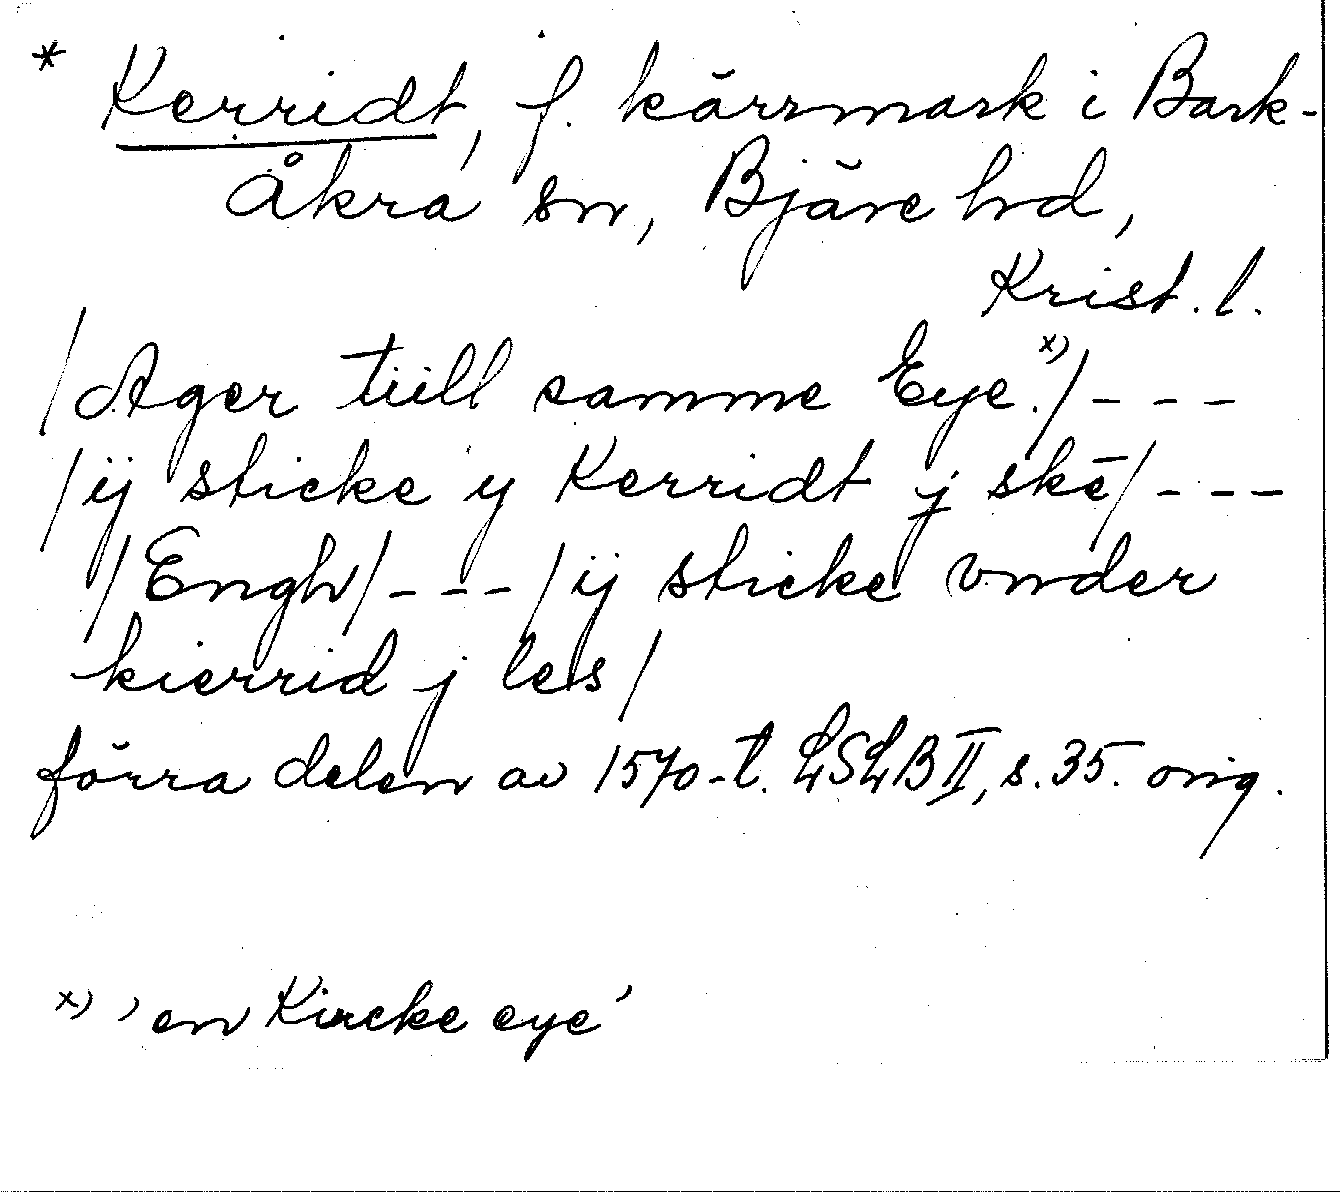 * Kerridt, f. kärrmark i Bark-
åkra sn, Bjäre hd,
Krist. l.
/Ager tiill samme Eye.x)/ - - -
/ij sticke y Kerridt j skē/ - - -
/Engh/ - - - /ij sticke vnder
kierrid j les/
förra delen av 1570-t. LSLB II, s. 35. orig.
x) 'en Kircke eye'